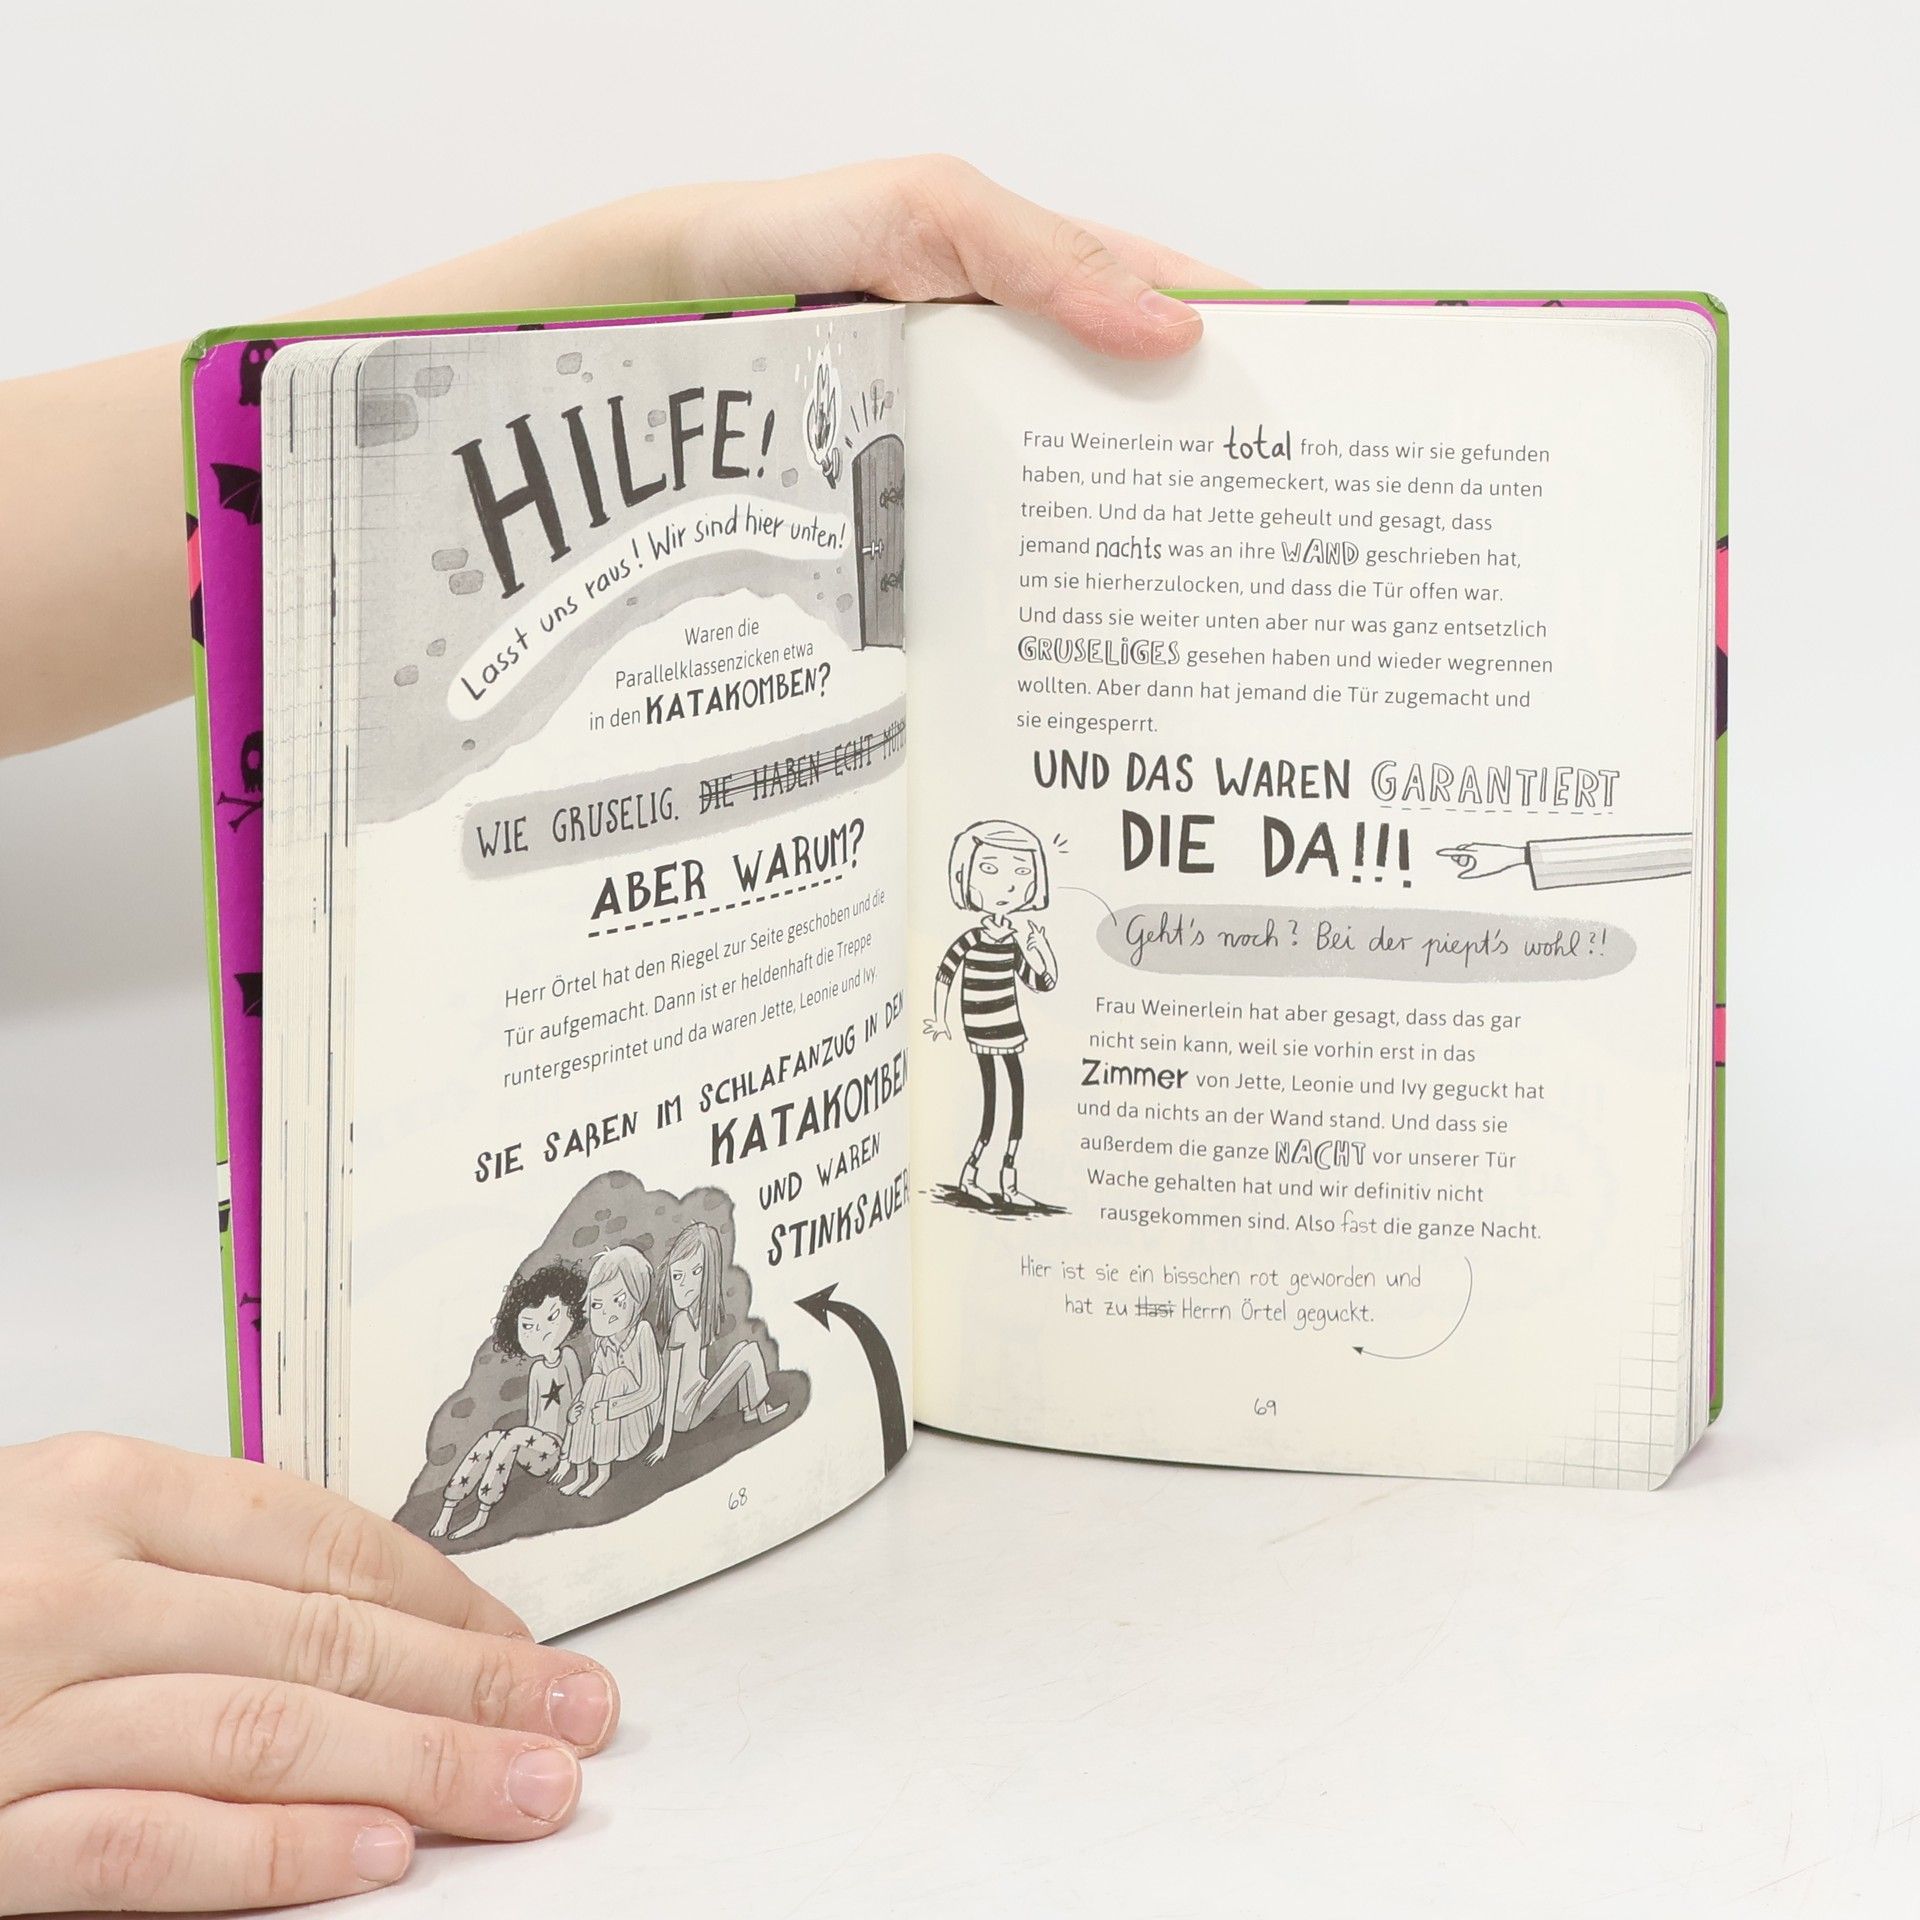 HILFE!
Lasst uns raus! Wir sind hier unten!
Waren die
Parallelklassenzicken etwa
in den KATAKOMBEN?
WIE GRUSELIG. DIE HABEN ECHT
ABER WARUM?
Herr Örtel hat den Riegel zur Seite geschoben und die
Tür aufgemacht. Dann ist er heldenhaft die Treppe
runtergesprintet und da waren Jette, Leonie und Ivy.
SIE SAßEN IM SCHLAFANZUG IN DEN
KATAKOMBEN
UND WAREN
STINKSAUER
68
Frau Weinerlein war total froh, dass wir sie gefunden
haben, und hat sie angemeckert, was sie denn da unten
treiben. Und da hat Jette geheult und gesagt, dass
jemand nachts was an ihre WAND geschrieben hat,
um sie hierherzulocken, und dass die Tür offen war.
Und dass sie weiter unten aber nur was ganz entsetzlich
GRUSELIGES gesehen haben und wieder wegrennen
wollten. Aber dann hat jemand die Tür zugemacht und
sie eingesperrt.
UND DAS WAREN GARANTIERT
DIE DA!!!
Geht's noch? Bei der piept's wohl?!
Frau Weinerlein hat aber gesagt, dass das gar
nicht sein kann, weil sie vorhin erst in das
Zimmer von Jette, Leonie und Ivy geguckt hat
und da nichts an der Wand stand. Und dass sie
außerdem die ganze NACHT vor unserer Tür
Wache gehalten hat und wir definitiv nicht
rausgekommen sind. Also fast die ganze Nacht.
Hier ist sie ein bisschen rot geworden und
hat zu Hasi Herrn Örtel geguckt.
69